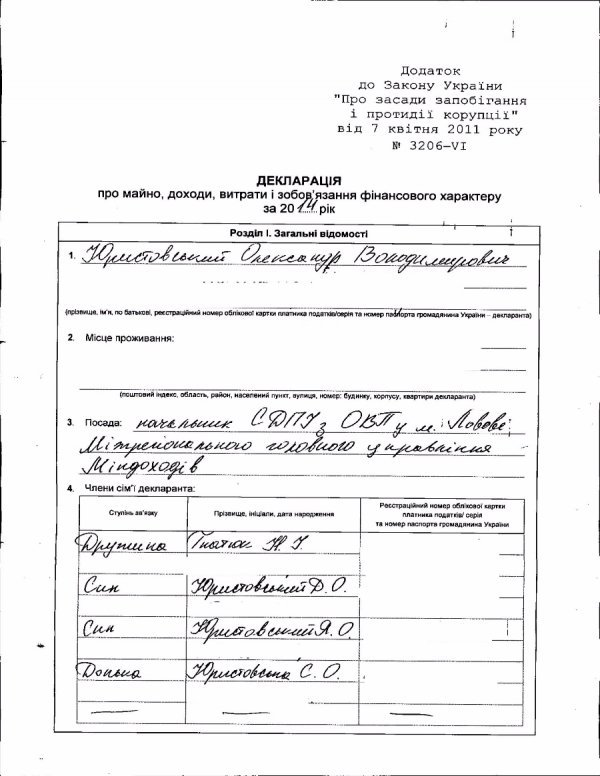 Додаток
до Закону України
"Про засади запобігання
і протидії корупції"
від 7 квітня 2011 року
№ 3206-VI
ДЕКЛАРАЦІЯ
про майно, доходи, витрати і зобов'язання фінансового характеру
за 2014 рік
Розділ І. Загальні відомості
1. Юристовський Олександр Володимирович
(прізвище, ім'я, по батькові, реєстраційний номер облікової картки платника податків/серія та номер паспорта громадянина України – декларанта)
2. Місце проживання:
(поштовий індекс, область, район, населений пункт, вулиця, номер: будинку, корпусу, квартири декларанта)
3. Посада: начальник СДПІ з ОВП у м. Львові
Міжрегіонального головного управління
Міндоходів
4. Члени сім'ї декларанта:
Ступінь зв'язку
Прізвище, ініціали, дата народження
Реєстраційний номер облікової картки
платника податків/ серія
та номер паспорта громадянина України
Дружина Гнатюк Н. І.
Син Юристовський Д. О.
Син Юристовський Я. О.
Донька Юристовська С. О.